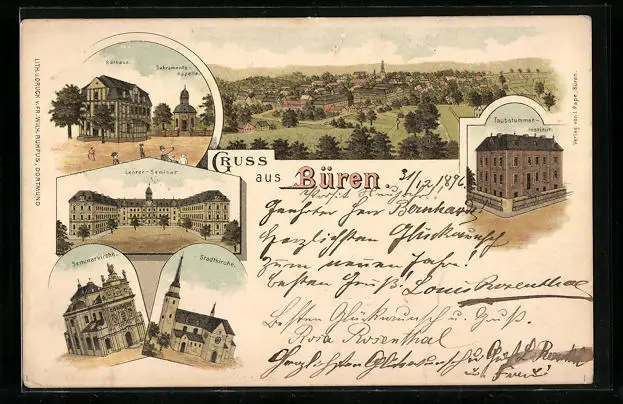 LITH. u. DRUCK v. FR. WILH. RUHFUS, DORTMUND
Rathaus.
Sakraments-
kapelle
Lehrer-Seminar.
Seminarkirche.
Stadtkirche.
Taubstummen-
Institut.
Verlag von I. Pape, Büren.
GRUSS
aus Büren.
31/12 1896
Geehrter Herr Bernhard
Herzlichsten Glückwunsch
zum neuen Jahre!
besten Gruß, Louis Rosenthal
Besten Glückwunsch u. Gruß.
Rosa Rosenthal
Herzlichsten Glückwunsch u. Gruß
u. Frau